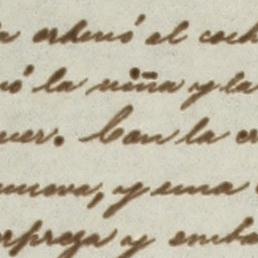 a ordenó al coch
ó la niña y la
uer. Con la cr
nueva, y una
rpreza y emba